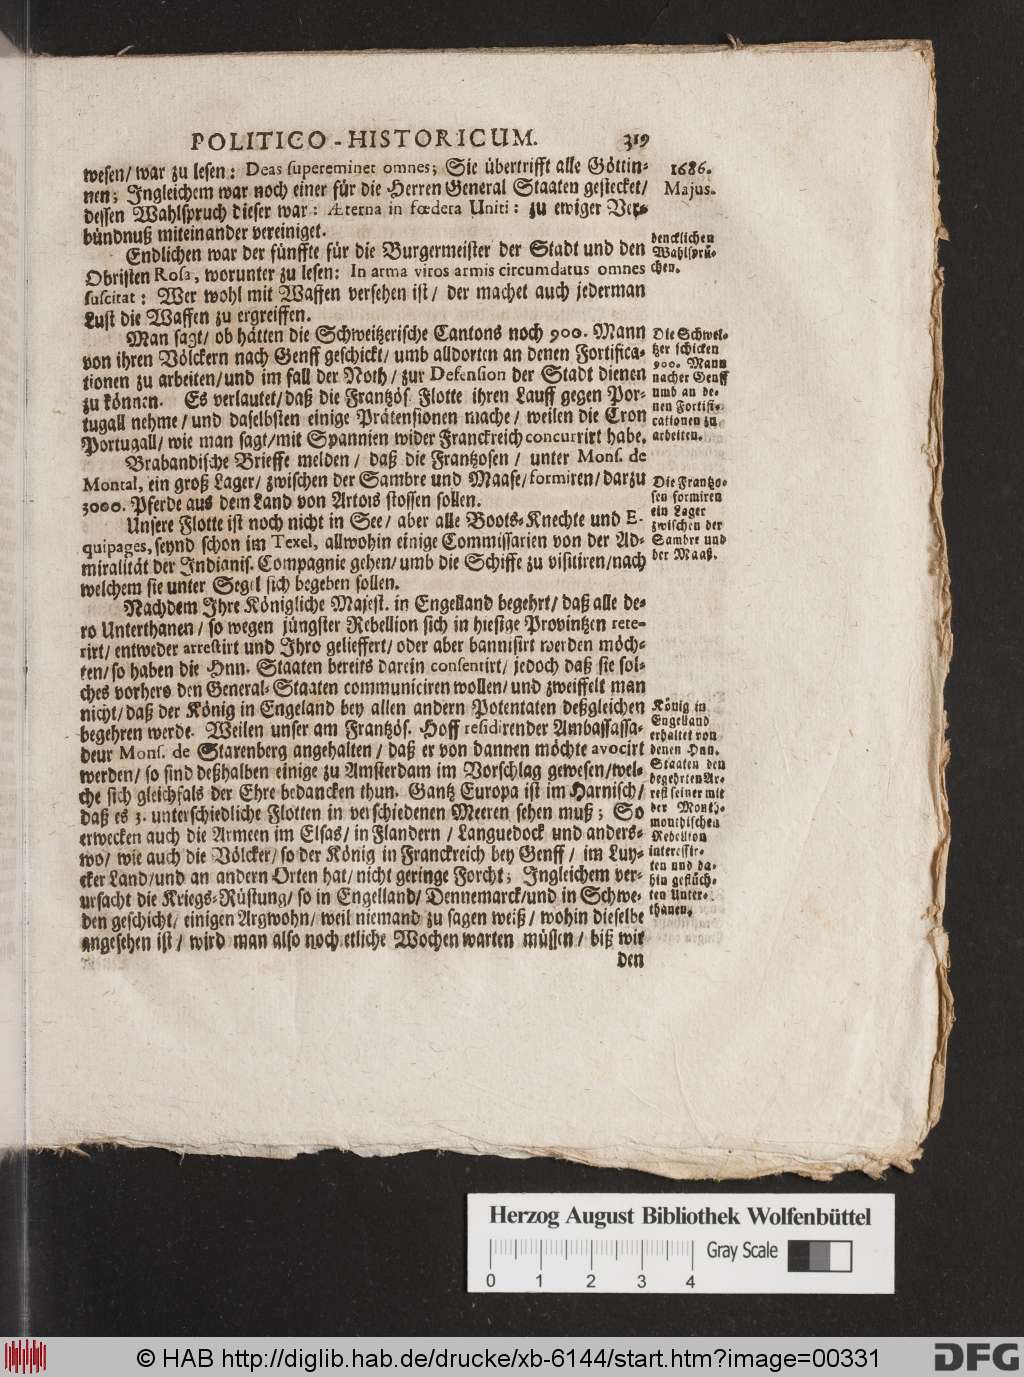 POLITICO-HISTORICUM. 319
wesen/ war zu lesen: Deas supereminet omnes; Sie übertrifft alle Göttin-
nen; Ingleichem war noch einer für die Herren General Staaten gestecket/
dessen Wahlspruch dieser war: Æterna in fœdera Uniti: zu ewiger Ver-
bündnuß miteinander vereiniget.
Endlichen war der fünffte für die Burgermeister der Stadt und den
Obristen Rosa, worunter zu lesen: In arma viros armis circumdatus omnes
suscitat: Wer wohl mit Waffen versehen ist/ der machet auch jederman
Lust die Waffen zu ergreiffen.
Man sagt/ ob hätten die Schweitzerische Cantons noch 900. Mann
von ihren Völckern nach Genff geschickt/ umb alldorten an denen Fortifica-
tionen zu arbeiten/ und im fall der Noth/ zur Defension der Stadt dienen
zu können. Es verlautet/ daß die Frantzös. Flotte ihren Lauff gegen Por-
tugall nehme/ und daselbsten einige Prätensionen mache/ weilen die Cron
Portugall/ wie man sagt/ mit Spannien wider Franckreich concurrirt habe.
Brabandische Brieffe melden/ daß die Frantzosen/ unter Mons. de
Montal, ein groß Lager/ zwischen der Sambre und Maase/ formiren/ darzu
3000. Pferde aus dem Land von Artois stossen sollen.
Unsere Flotte ist noch nicht in See/ aber alle Boots-Knechte und E-
quipages, seynd schon im Texel, allwohin einige Commissarien von der Ad-
miralität der Indianis. Compagnie gehen/ umb die Schiffe zu visitiren/ nach
welchem sie unter Segel sich begeben sollen.
Nachdem Ihre Königliche Majest. in Engelland begehrt/ daß alle de-
ro Unterthanen/ so wegen jüngster Rebellion sich in hiesige Provintzen rete-
rirt/ entweder arrestirt und Ihro geliefert/ oder aber bannisirt werden möch-
ten/ so haben die Hnn. Staaten bereits darein consentirt/ jedoch daß sie sol-
ches vorhero den General-Staaten communiciren wollen/ und zweiffelt man
nicht/ daß der König in Engeland bey allen andern Potentaten deßgleichen
begehren werde. Weilen unser am Frantzös. Hoff residirender Ambassa-
deur Mons. de Starenberg angehalten/ daß er von dannen möchte avocirt
werden/ so sind deßhalben einige zu Amsterdam im Vorschlag gewesen/ wel-
che sich gleichfals der Ehre bedancken thun. Gantz Europa ist im Harnisch/
daß es 3. unterschiedliche Flotten in verschiedenen Meeren sehen muß; So
erwecken auch die Armeen im Elsas/ in Flandern/ Languedock und anders-
wo/ wie auch die Völcker/ so der König in Franckreich bey Genff/ im Luy-
cker Land/ und an andern Orten hat/ nicht geringe Forcht; Ingleichem ver-
ursacht die Kriegs-Rüstung/ so in Engelland/ Dennemarck/ und in Schwe-
den geschicht/ einigen Argwohn/ weil niemand zu sagen weiß/ wohin dieselbe
angesehen ist/ wird man also noch etliche Wochen warten müssen/ biß wir
den
1686.
Majus.
dencklichen
Wahlsprü-
chen.
Die Schwei-
tzer schicken
900. Mann
nacher Genff
umb an de-
nen Fortifi-
cationen zu
arbeiten.
Die Frantzo-
sen formiren
ein Lager
zwischen der
Sambre und
der Maaß.
König in
Engelland
erhaltet von
denen Hnn.
Staaten den
begehrten Ar-
rest seiner mit
der Mont-
mouthischen
Rebellion
interessir-
ten und da-
hin geflüch-
ten Unter-
thanen.
Herzog August Bibliothek Wolfenbüttel
0 1 2 3 4
Gray Scale
© HAB http://diglib.hab.de/drucke/xb-6144/start.htm?image=00331
DFG